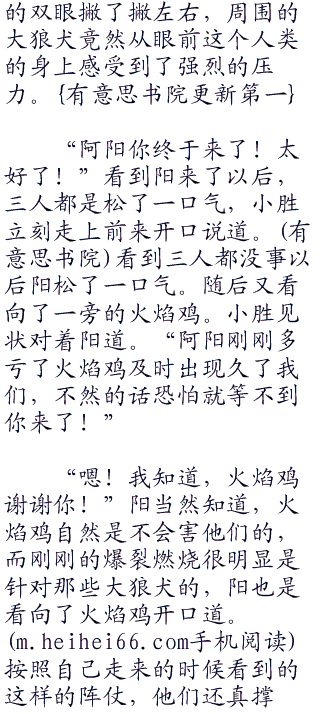 的双眼撇了撇左右，周围的
大狼犬竟然从眼前这个人类
的身上感受到了强烈的压
力。{有意思书院更新第一}
“阿阳你终于来了！太
好了！”看到阳来了以后，
三人都是松了一口气，小胜
立刻走上前来开口说道。(有
意思书院)看到三人都没事以
后阳松了一口气。随后又看
向了一旁的火焰鸡。小胜见
状对着阳道。“阿阳刚刚多
亏了火焰鸡及时出现久了我
们，不然的话恐怕就等不到
你来了！”
“嗯！我知道，火焰鸡
谢谢你！”阳当然知道，火
焰鸡自然是不会害他们的，
而刚刚的爆裂燃烧很明显是
针对那些大狼犬的，阳也是
看向了火焰鸡开口道。
(m.heihei66.com手机阅读)
按照自己走来的时候看到的
这样的阵仗，他们还真撑